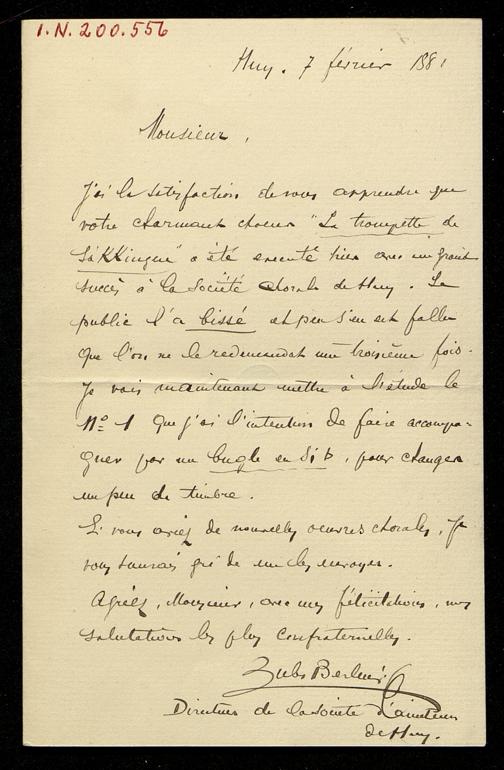 I.N. 200.556
Huy. 7 février 188
Monsieur,
J'ai la satisfaction de vous apprendre que
votre charmant chœur "La trompette de
Säkkingue" a été executé hier avec un grand
succès à la Société chorale de Huy. Le
public l'a bissé et peu s'en est fallu
que l'on ne le redemandat une troisième fois.
Je vais maintenant mettre à l'étude le
No 1 que j'ai l'intention de faire accompa-
gner par un bugle en Si b, pour changer
un peu de timbre.
Si vous aviez de nouvelles œuvres chorales, je
vous saurais gré de me les envoyer.
Agréez, Monsieur, avec mes félicitations, mes
salutations les plus confraternelles.
Jules
Directeur de la Société d'amateurs
de Huy.